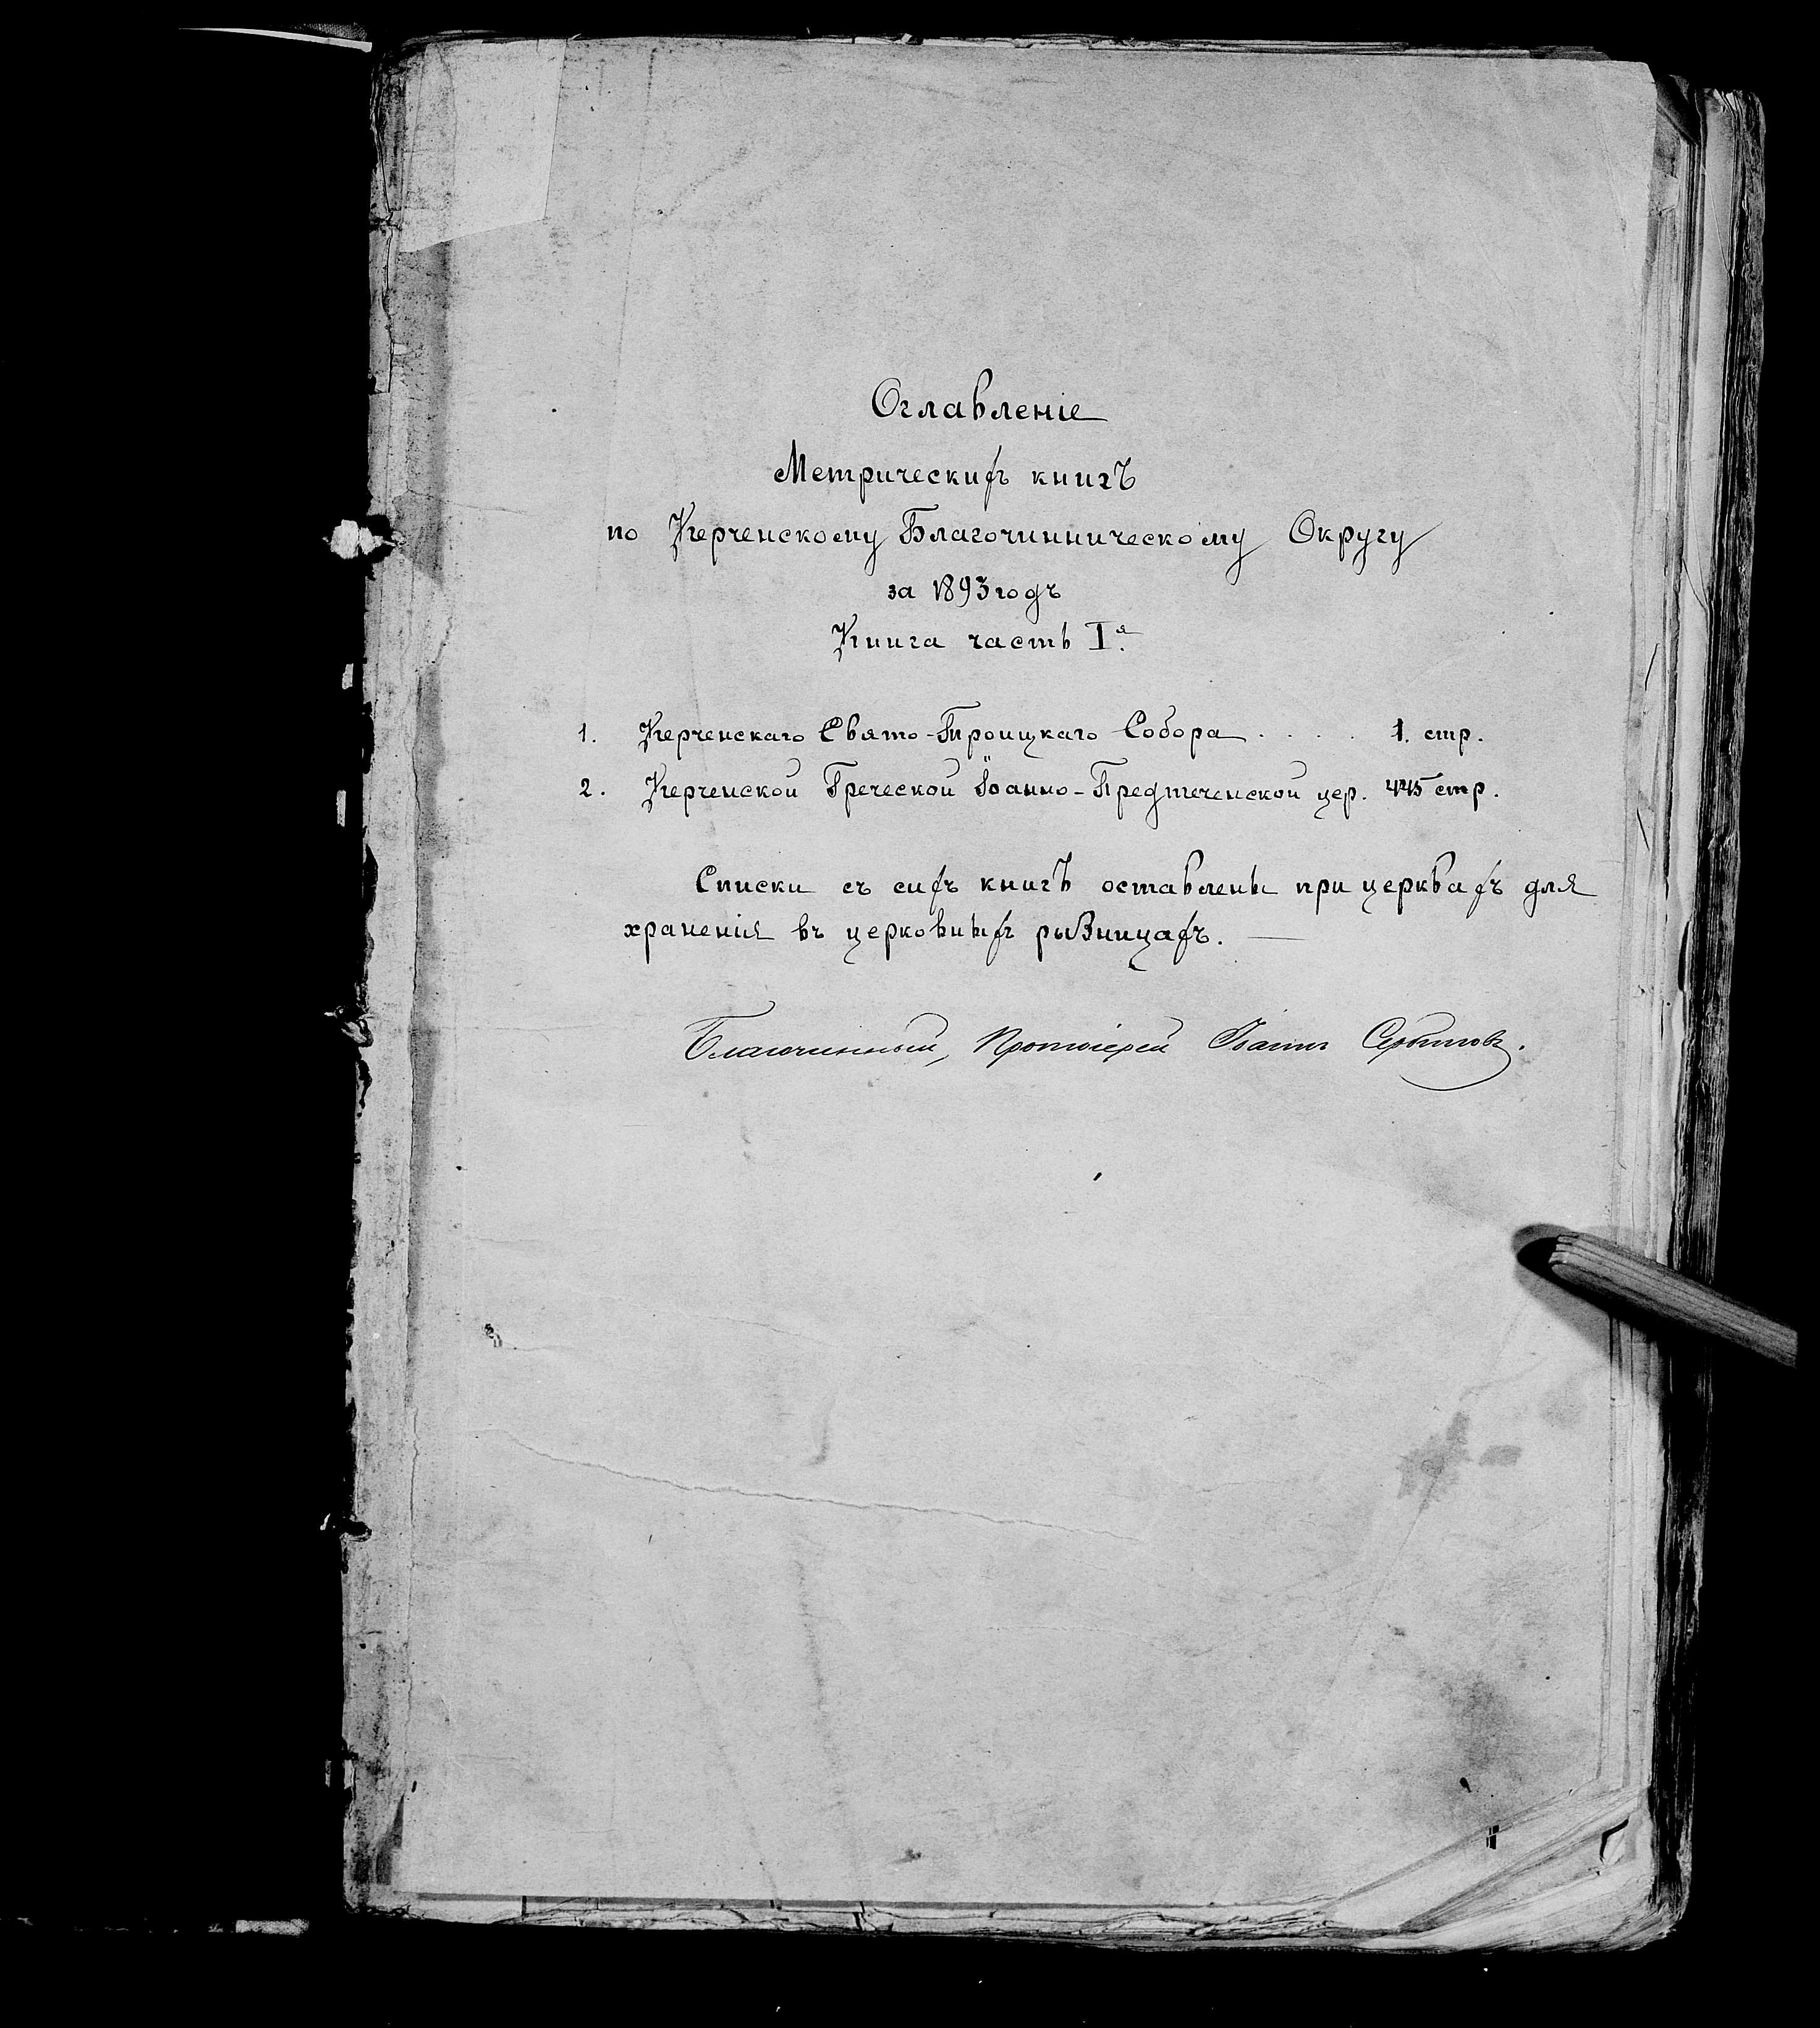 Оглавленіе
Метрическихъ книгъ
по Керченскому Благочинническому Округу
за 1893 годъ
Книга часть Iя.
1. Керченскаго Свято-Троицкаго Собора . . . . . 1. стр.
2. Керченской Греческой Іоанно-Предтеченской цер. 445 стр.
Списки съ сихъ книгъ оставлены при церквахъ для
храненія въ церковныхъ рызницахъ. —
Благочинный, Протоіерей Іоаннъ